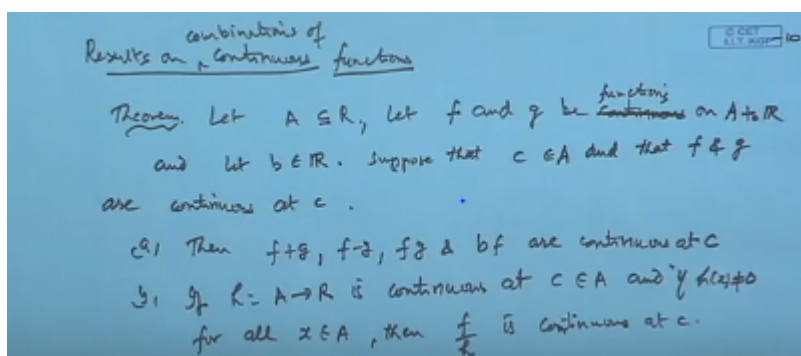 Results on combinations of continuous functions
© CET
I.I.T. KGP
10
Theorem. Let A ⊆ R, let f and g be functions on A to R
and let b ∈ R. Suppose that c ∈ A and that f & g
are continuous at c.
(a) Then f+g, f-g, fg & bf are continuous at c
(b) If h: A → R is continuous at c ∈ A and if h(x) ≠ 0
for all x ∈ A, then f/h is continuous at c.